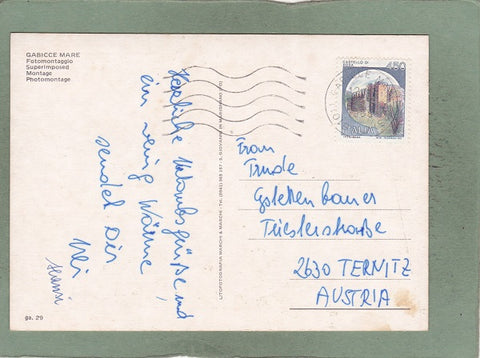 GABICCE MARE
Fotomontaggio
Superimposed
Montage
Photomontage
Herzliche Urlaubsgrüße und
ein wenig Wärme
sendet Dir
ga. 29
LITOFOTOGRAFIA MARCHI & MARCHI - S. GIOVANNI IN MARIGNANO
CASTELLO DI
450
ITALIA
Frau
Trude
Triesterstraße
2630 TERNITZ
AUSTRIA